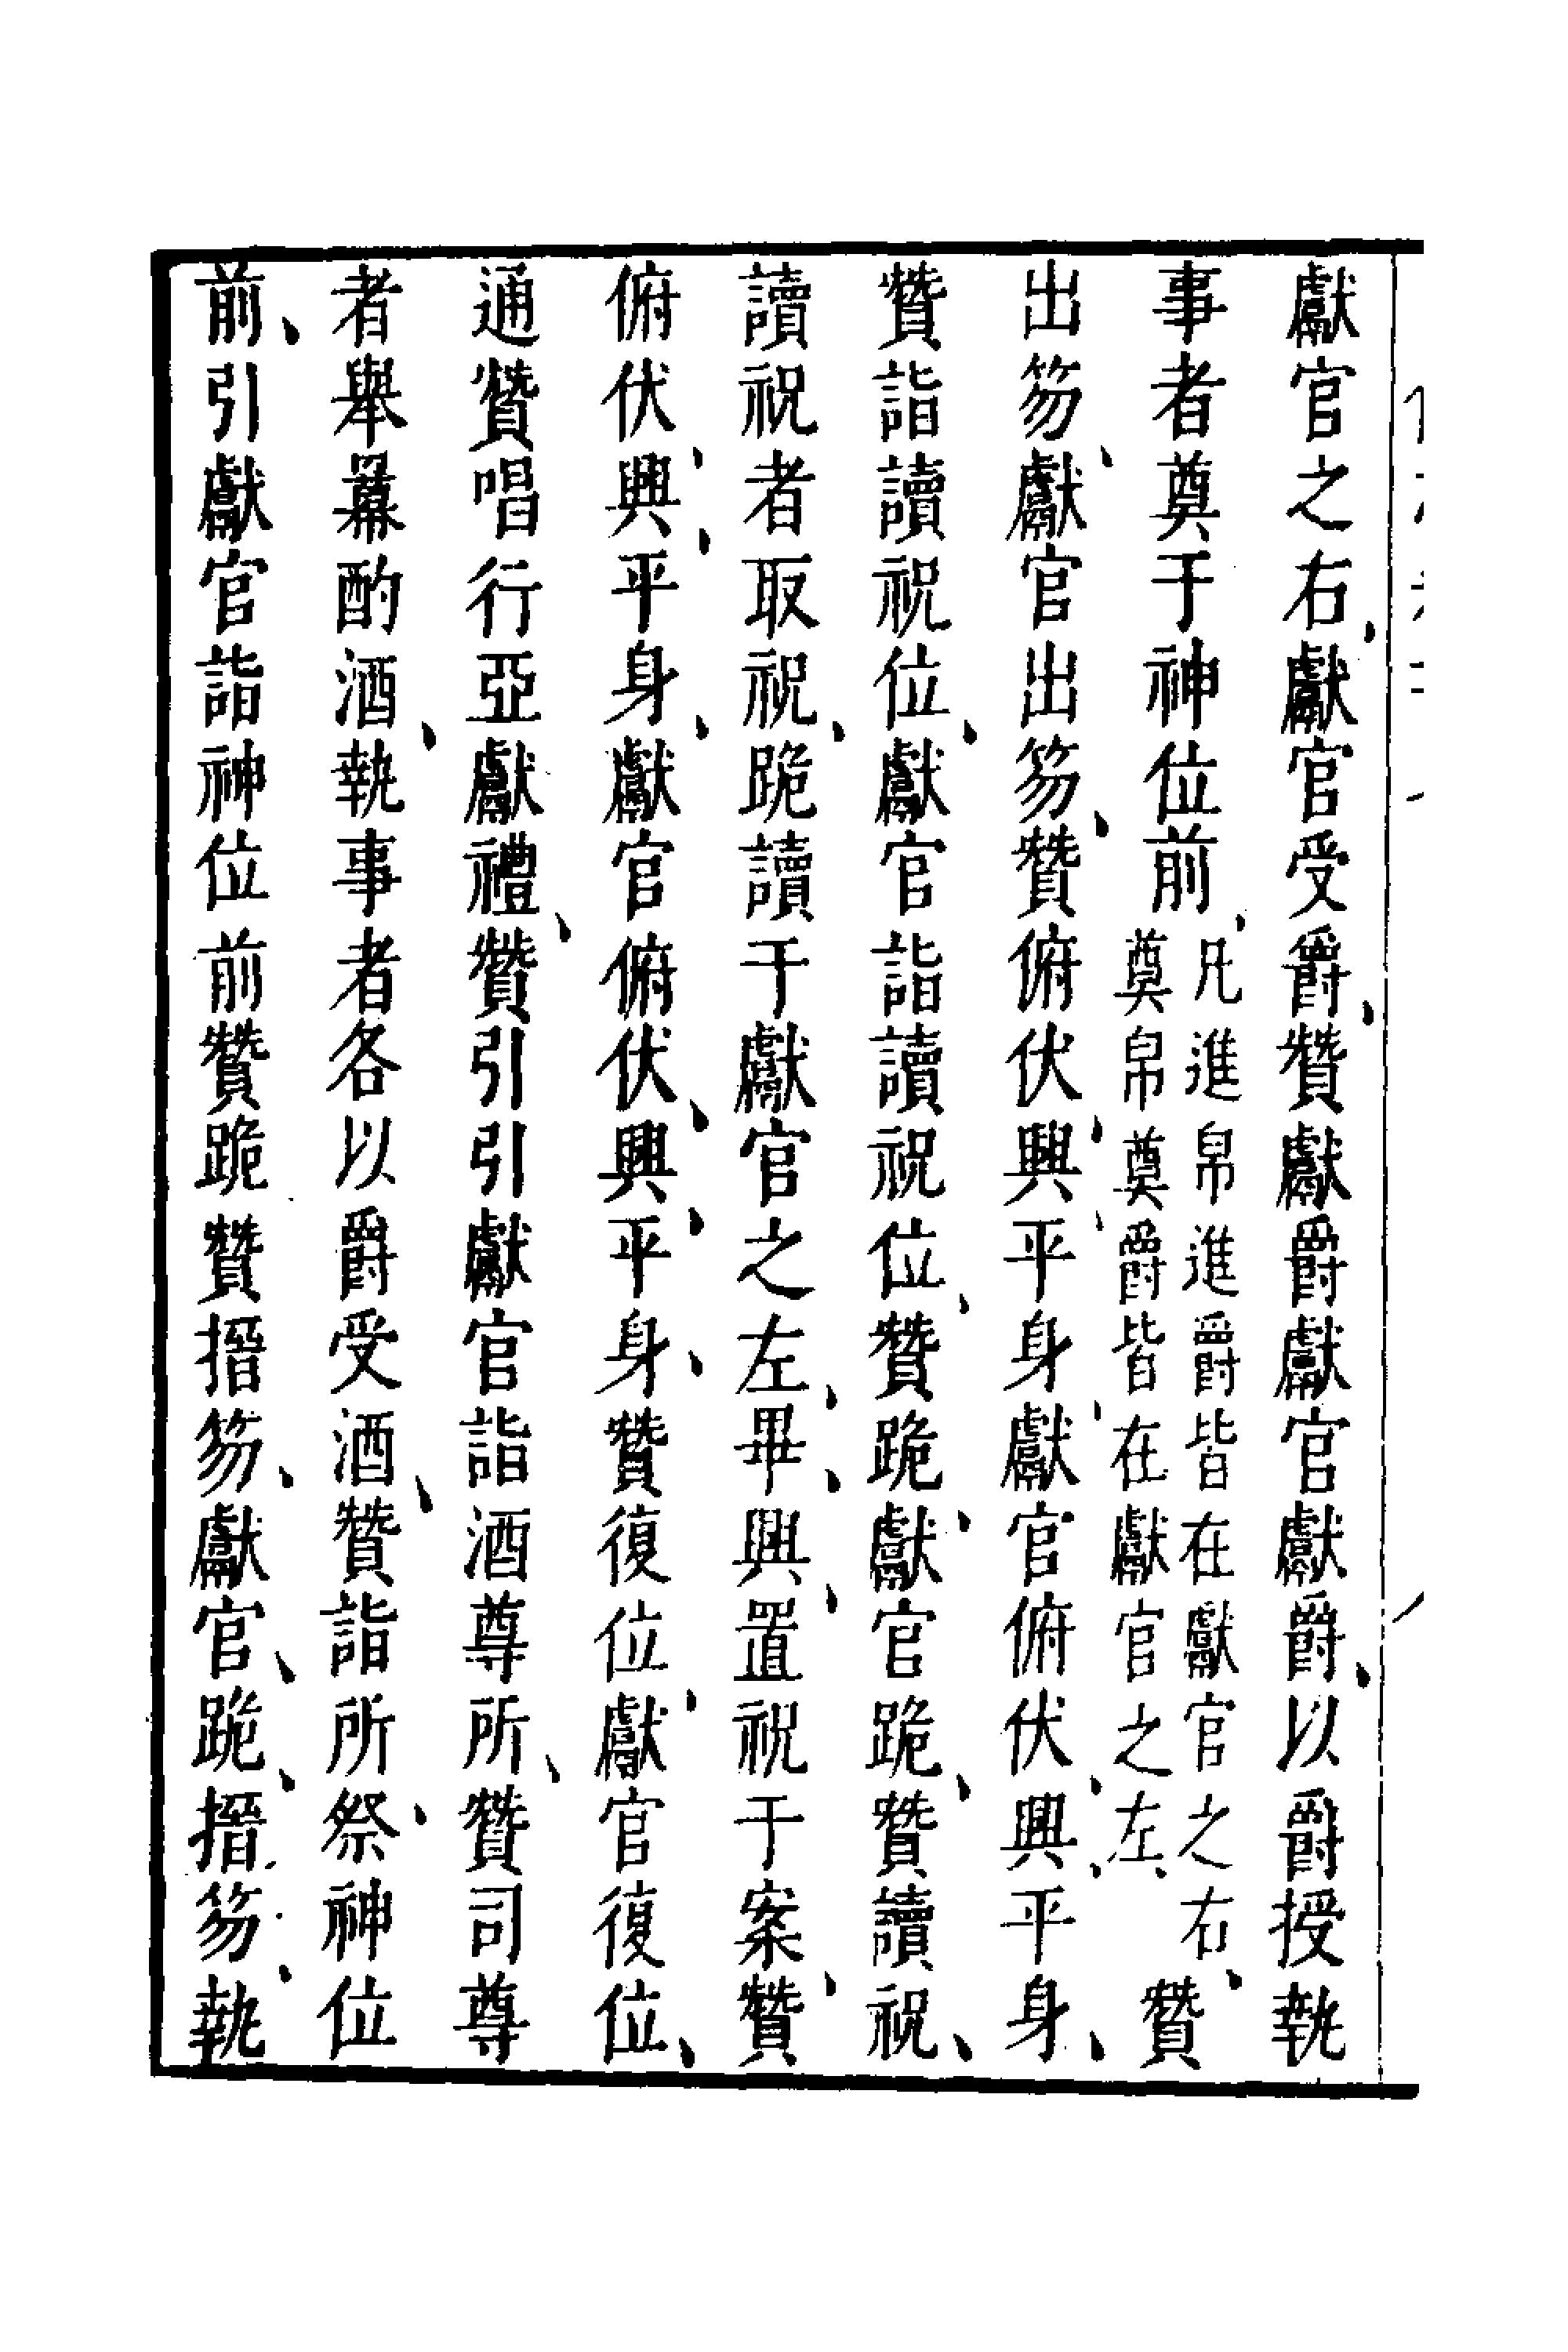 獻官之右、獻官受爵、贊獻爵獻官獻爵、以爵授執
事者奠于神位前、凡進帛進爵皆在獻官之右、奠帛奠爵皆在獻官之左、贊
出笏、獻官出笏、贊俯伏、興、平身、獻官俯伏、興、平身、
贊詣讀祝位、獻官詣讀祝位、贊跪、獻官跪、贊讀祝、
讀祝者取祝、跪讀于獻官之左、畢、興、置祝于案、贊
俯伏、興、平身、獻官俯伏、興、平身、贊復位、獻官復位、
通贊唱行亞獻禮、贊引引獻官詣酒尊所、贊司尊
者舉羃酌酒、執事者各以爵受酒、贊詣所祭神位
前、引獻官詣神位前贊跪贊搢笏、獻官、跪、搢笏、執